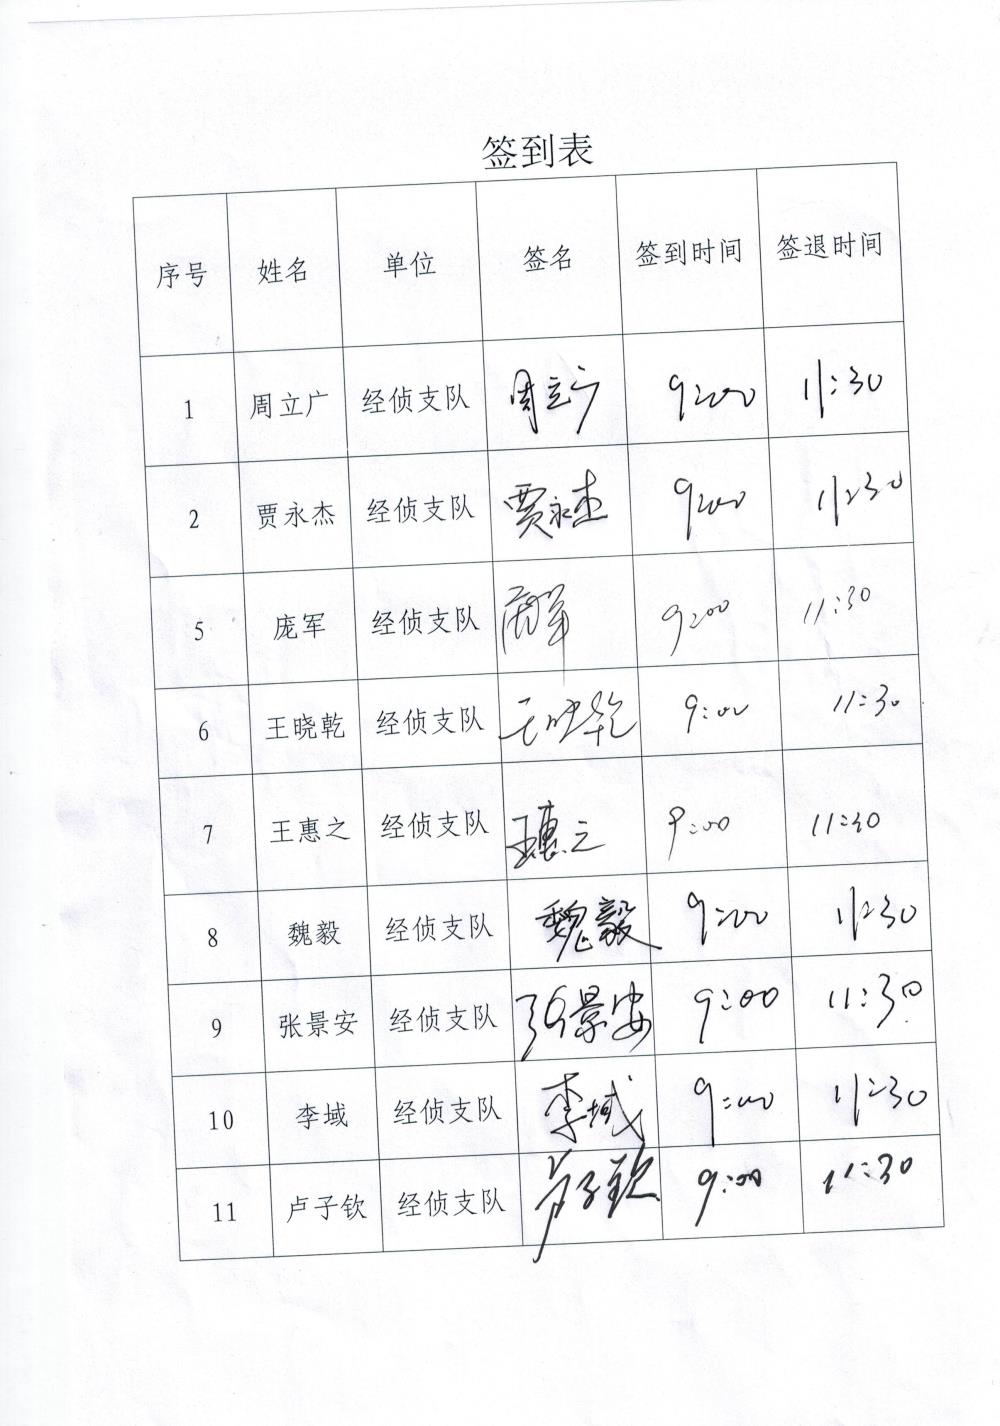 签到表
序号 姓名 单位 签名 签到时间 签退时间
1 周立广 经侦支队 周立广 9:00 11:30
2 贾永杰 经侦支队 贾永杰 9:00 11:30
5 庞军 经侦支队 庞军 9:00 11:30
6 王晓乾 经侦支队 王晓乾 9:00 11:30
7 王惠之 经侦支队 王惠之 9:00 11:30
8 魏毅 经侦支队 魏毅 9:00 11:30
9 张景安 经侦支队 张景安 9:00 11:30
10 李域 经侦支队 李域 9:00 11:30
11 卢子钦 经侦支队 卢子钦 9:00 11:30